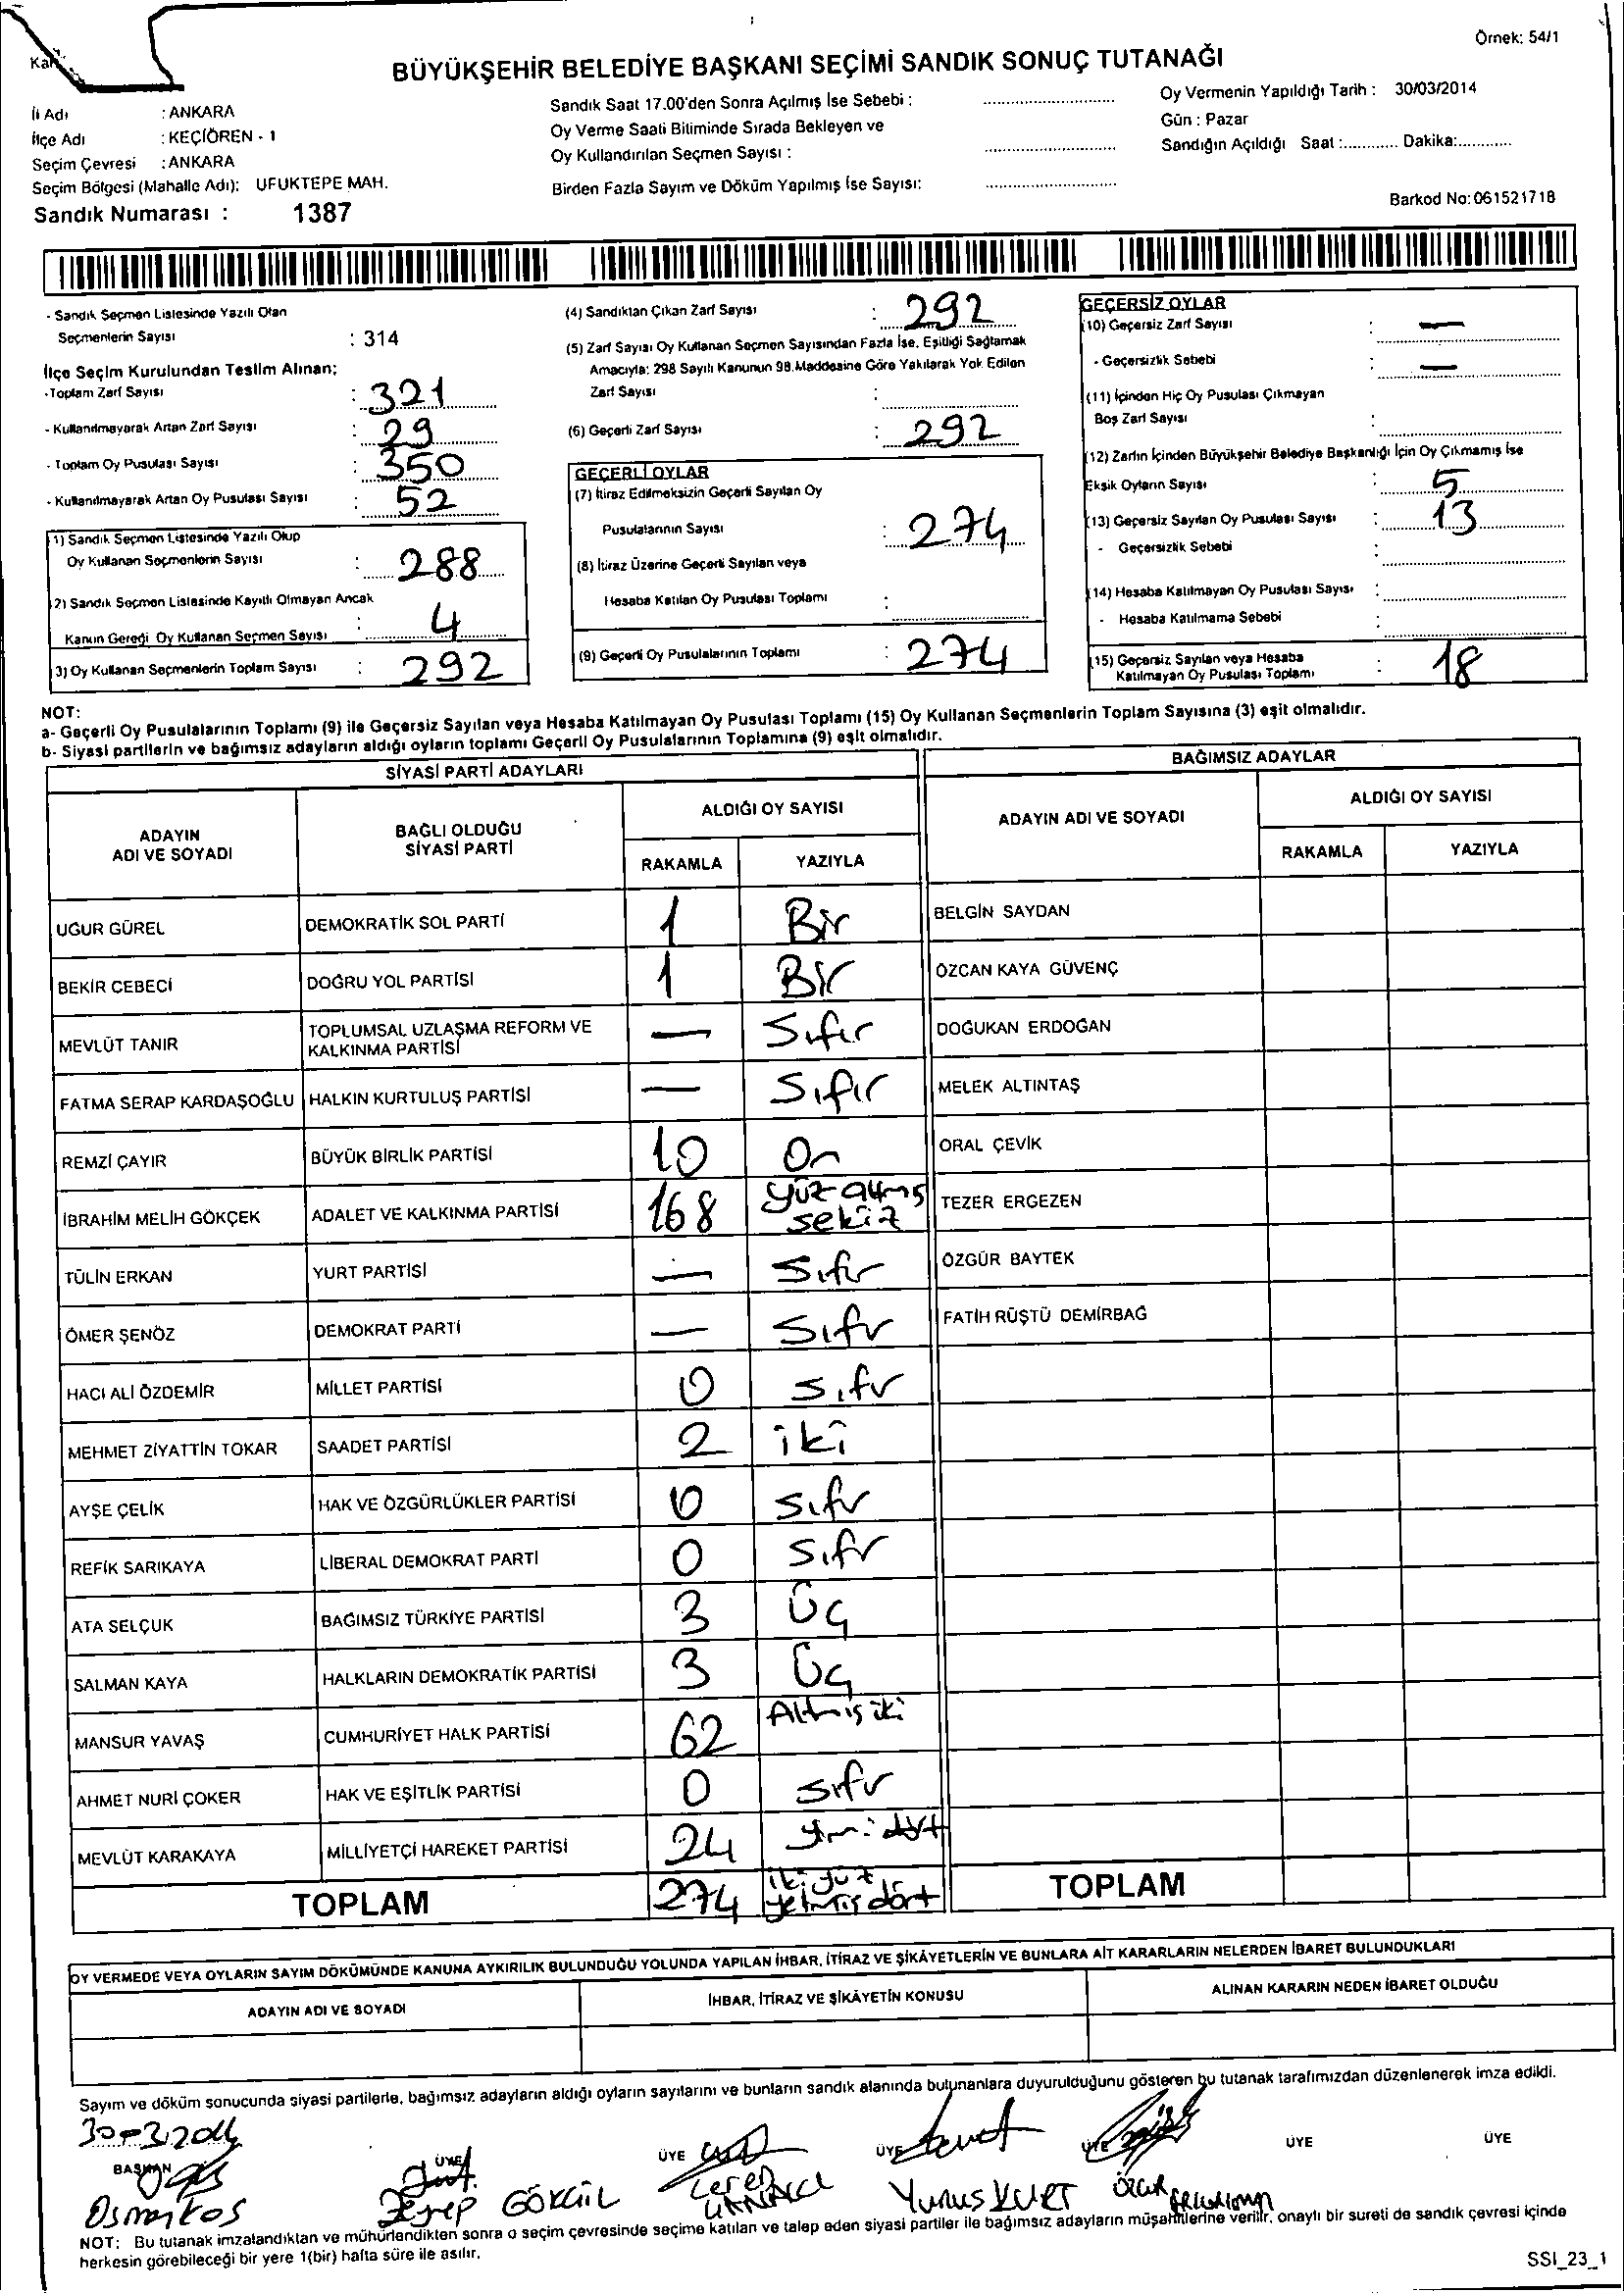 Örnek: 54/1
BÜYÜKŞEHİR BELEDİYE BAŞKANI SEÇİMİ SANDIK SONUÇ TUTANAĞI
İl Adı : ANKARA
İlçe Adı : KEÇİÖREN - 1
Seçim Çevresi : ANKARA
Seçim Bölgesi (Mahalle Adı): UFUKTEPE MAH.
Sandık Numarası : 1387
Sandık Saat 17.00'den Sonra Açılmış İse Sebebi :
Oy Verme Saati Bitiminde Sırada Bekleyen ve
Oy Kullandırılan Seçmen Sayısı :
Birden Fazla Sayım ve Döküm Yapılmış İse Sayısı:
Oy Vermenin Yapıldığı Tarih : 30/03/2014
Gün : Pazar
Sandığın Açıldığı Saat :............ Dakika:............
Barkod No:061521718
- Sandık Seçmen Listesinde Yazılı Olan
Seçmenlerin Sayısı : 314
İlçe Seçim Kurulundan Teslim Alınan:
-Toplam Zarf Sayısı : 321
- Kullanılmayarak Artan Zarf Sayısı : 29
- Toplam Oy Pusulası Sayısı : 350
- Kullanılmayarak Artan Oy Pusulası Sayısı : 52
1) Sandık Seçmen Listesinde Yazılı Olup
Oy Kullanan Seçmenlerin Sayısı : 288
2) Sandık Seçmen Listesinde Kayıtlı Olmayan Ancak
Kanun Gereği Oy Kullanan Seçmen Sayısı : 4
3) Oy Kullanan Seçmenlerin Toplam Sayısı : 292
(4) Sandıktan Çıkan Zarf Sayısı : 292
(5) Zarf Sayısı Oy Kullanan Seçmen Sayısından Fazla İse, Eşitliği Sağlamak
Amacıyla: 298 Sayılı Kanunun 98.Maddesine Göre Yakılarak Yok Edilen
Zarf Sayısı :
(6) Geçerli Zarf Sayısı : 292
GEÇERLİ OYLAR
(7) İtiraz Edilmeksizin Geçerli Sayılan Oy
Pusulalarının Sayısı : 274
(8) İtiraz Üzerine Geçerli Sayılan veya
Hesaba Katılan Oy Pusulası Toplamı :
(9) Geçerli Oy Pusulalarının Toplamı : 274
GEÇERSİZ OYLAR
(10) Geçersiz Zarf Sayısı : —
- Geçersizlik Sebebi : —
(11) İçinden Hiç Oy Pusulası Çıkmayan
Boş Zarf Sayısı :
(12) Zarfın İçinden Büyükşehir Belediye Başkanlığı İçin Oy Çıkmamış İse
Eksik Oyların Sayısı : 5
(13) Geçersiz Sayılan Oy Pusulası Sayısı : 13
- Geçersizlik Sebebi :
(14) Hesaba Katılmayan Oy Pusulası Sayısı :
- Hesaba Katılmama Sebebi :
(15) Geçersiz Sayılan veya Hesaba
Katılmayan Oy Pusulası Toplamı : 18
NOT:
a- Geçerli Oy Pusulalarının Toplamı (9) ile Geçersiz Sayılan veya Hesaba Katılmayan Oy Pusulası Toplamı (15) Oy Kullanan Seçmenlerin Toplam Sayısına (3) eşit olmalıdır.
b- Siyasi partilerin ve bağımsız adayların aldığı oyların toplamı Geçerli Oy Pusulalarının Toplamına (9) eşit olmalıdır.
SİYASİ PARTİ ADAYLARI
ADAYIN ADI VE SOYADI BAĞLI OLDUĞU SİYASİ PARTİ ALDIĞI OY SAYISI
RAKAMLA YAZIYLA
UĞUR GÜREL DEMOKRATİK SOL PARTİ 1 Bir
BEKİR CEBECİ DOĞRU YOL PARTİSİ 1 Bir
MEVLÜT TANIR TOPLUMSAL UZLAŞMA REFORM VE KALKINMA PARTİSİ — Sıfır
FATMA SERAP KARDAŞOĞLU HALKIN KURTULUŞ PARTİSİ — Sıfır
REMZİ ÇAYIR BÜYÜK BİRLİK PARTİSİ 10 On
İBRAHİM MELİH GÖKÇEK ADALET VE KALKINMA PARTİSİ 168 yüz altmış sekiz
TÜLİN ERKAN YURT PARTİSİ — Sıfır
ÖMER ŞENÖZ DEMOKRAT PARTİ — Sıfır
HACI ALİ ÖZDEMİR MİLLET PARTİSİ 0 Sıfır
MEHMET ZİYATTİN TOKAR SAADET PARTİSİ 2 iki
AYŞE ÇELİK HAK VE ÖZGÜRLÜKLER PARTİSİ 0 Sıfır
REFİK SARIKAYA LİBERAL DEMOKRAT PARTİ 0 Sıfır
ATA SELÇUK BAĞIMSIZ TÜRKİYE PARTİSİ 3 Üç
SALMAN KAYA HALKLARIN DEMOKRATİK PARTİSİ 3 Üç
MANSUR YAVAŞ CUMHURİYET HALK PARTİSİ 62 Altmış iki
AHMET NURİ ÇOKER HAK VE EŞİTLİK PARTİSİ 0 Sıfır
MEVLÜT KARAKAYA MİLLİYETÇİ HAREKET PARTİSİ 24 yirmi dört
TOPLAM 274 iki yüz yetmiş dört
BAĞIMSIZ ADAYLAR
ADAYIN ADI VE SOYADI ALDIĞI OY SAYISI
RAKAMLA YAZIYLA
BELGİN SAYDAN
ÖZCAN KAYA GÜVENÇ
DOĞUKAN ERDOĞAN
MELEK ALTINTAŞ
ORAL ÇEVİK
TEZER ERGEZEN
ÖZGÜR BAYTEK
FATİH RÜŞTÜ DEMİRBAĞ
TOPLAM
OY VERMEDE VEYA OYLARIN SAYIM DÖKÜMÜNDE KANUNA AYKIRILIK BULUNDUĞU YOLUNDA YAPILAN İHBAR, İTİRAZ VE ŞİKÂYETLERİN VE BUNLARA AİT KARARLARIN NELERDEN İBARET BULUNDUKLARI
ADAYIN ADI VE SOYADI İHBAR, İTİRAZ VE ŞİKÂYETİN KONUSU ALINAN KARARIN NEDEN İBARET OLDUĞU
Sayım ve döküm sonucunda siyasi partilerle, bağımsız adayların aldığı oyların sayılarını ve bunların sandık alanında bulunanlara duyurulduğunu gösteren bu tutanak tarafımızdan düzenlenerek imza edildi.
30-3-2014
BAŞKAN ÜYE ÜYE ÜYE ÜYE ÜYE ÜYE
Zeynep GÖKGÜL
Yunus KURT
NOT: Bu tutanak imzalandıktan ve mühürlendikten sonra o seçim çevresinde seçime katılan ve talep eden siyasi partiler ile bağımsız adayların müşahitlerine verilir, onaylı bir sureti de sandık çevresi içinde
herkesin görebileceği bir yere 1(bir) hafta süre ile asılır.
SSI_23_1